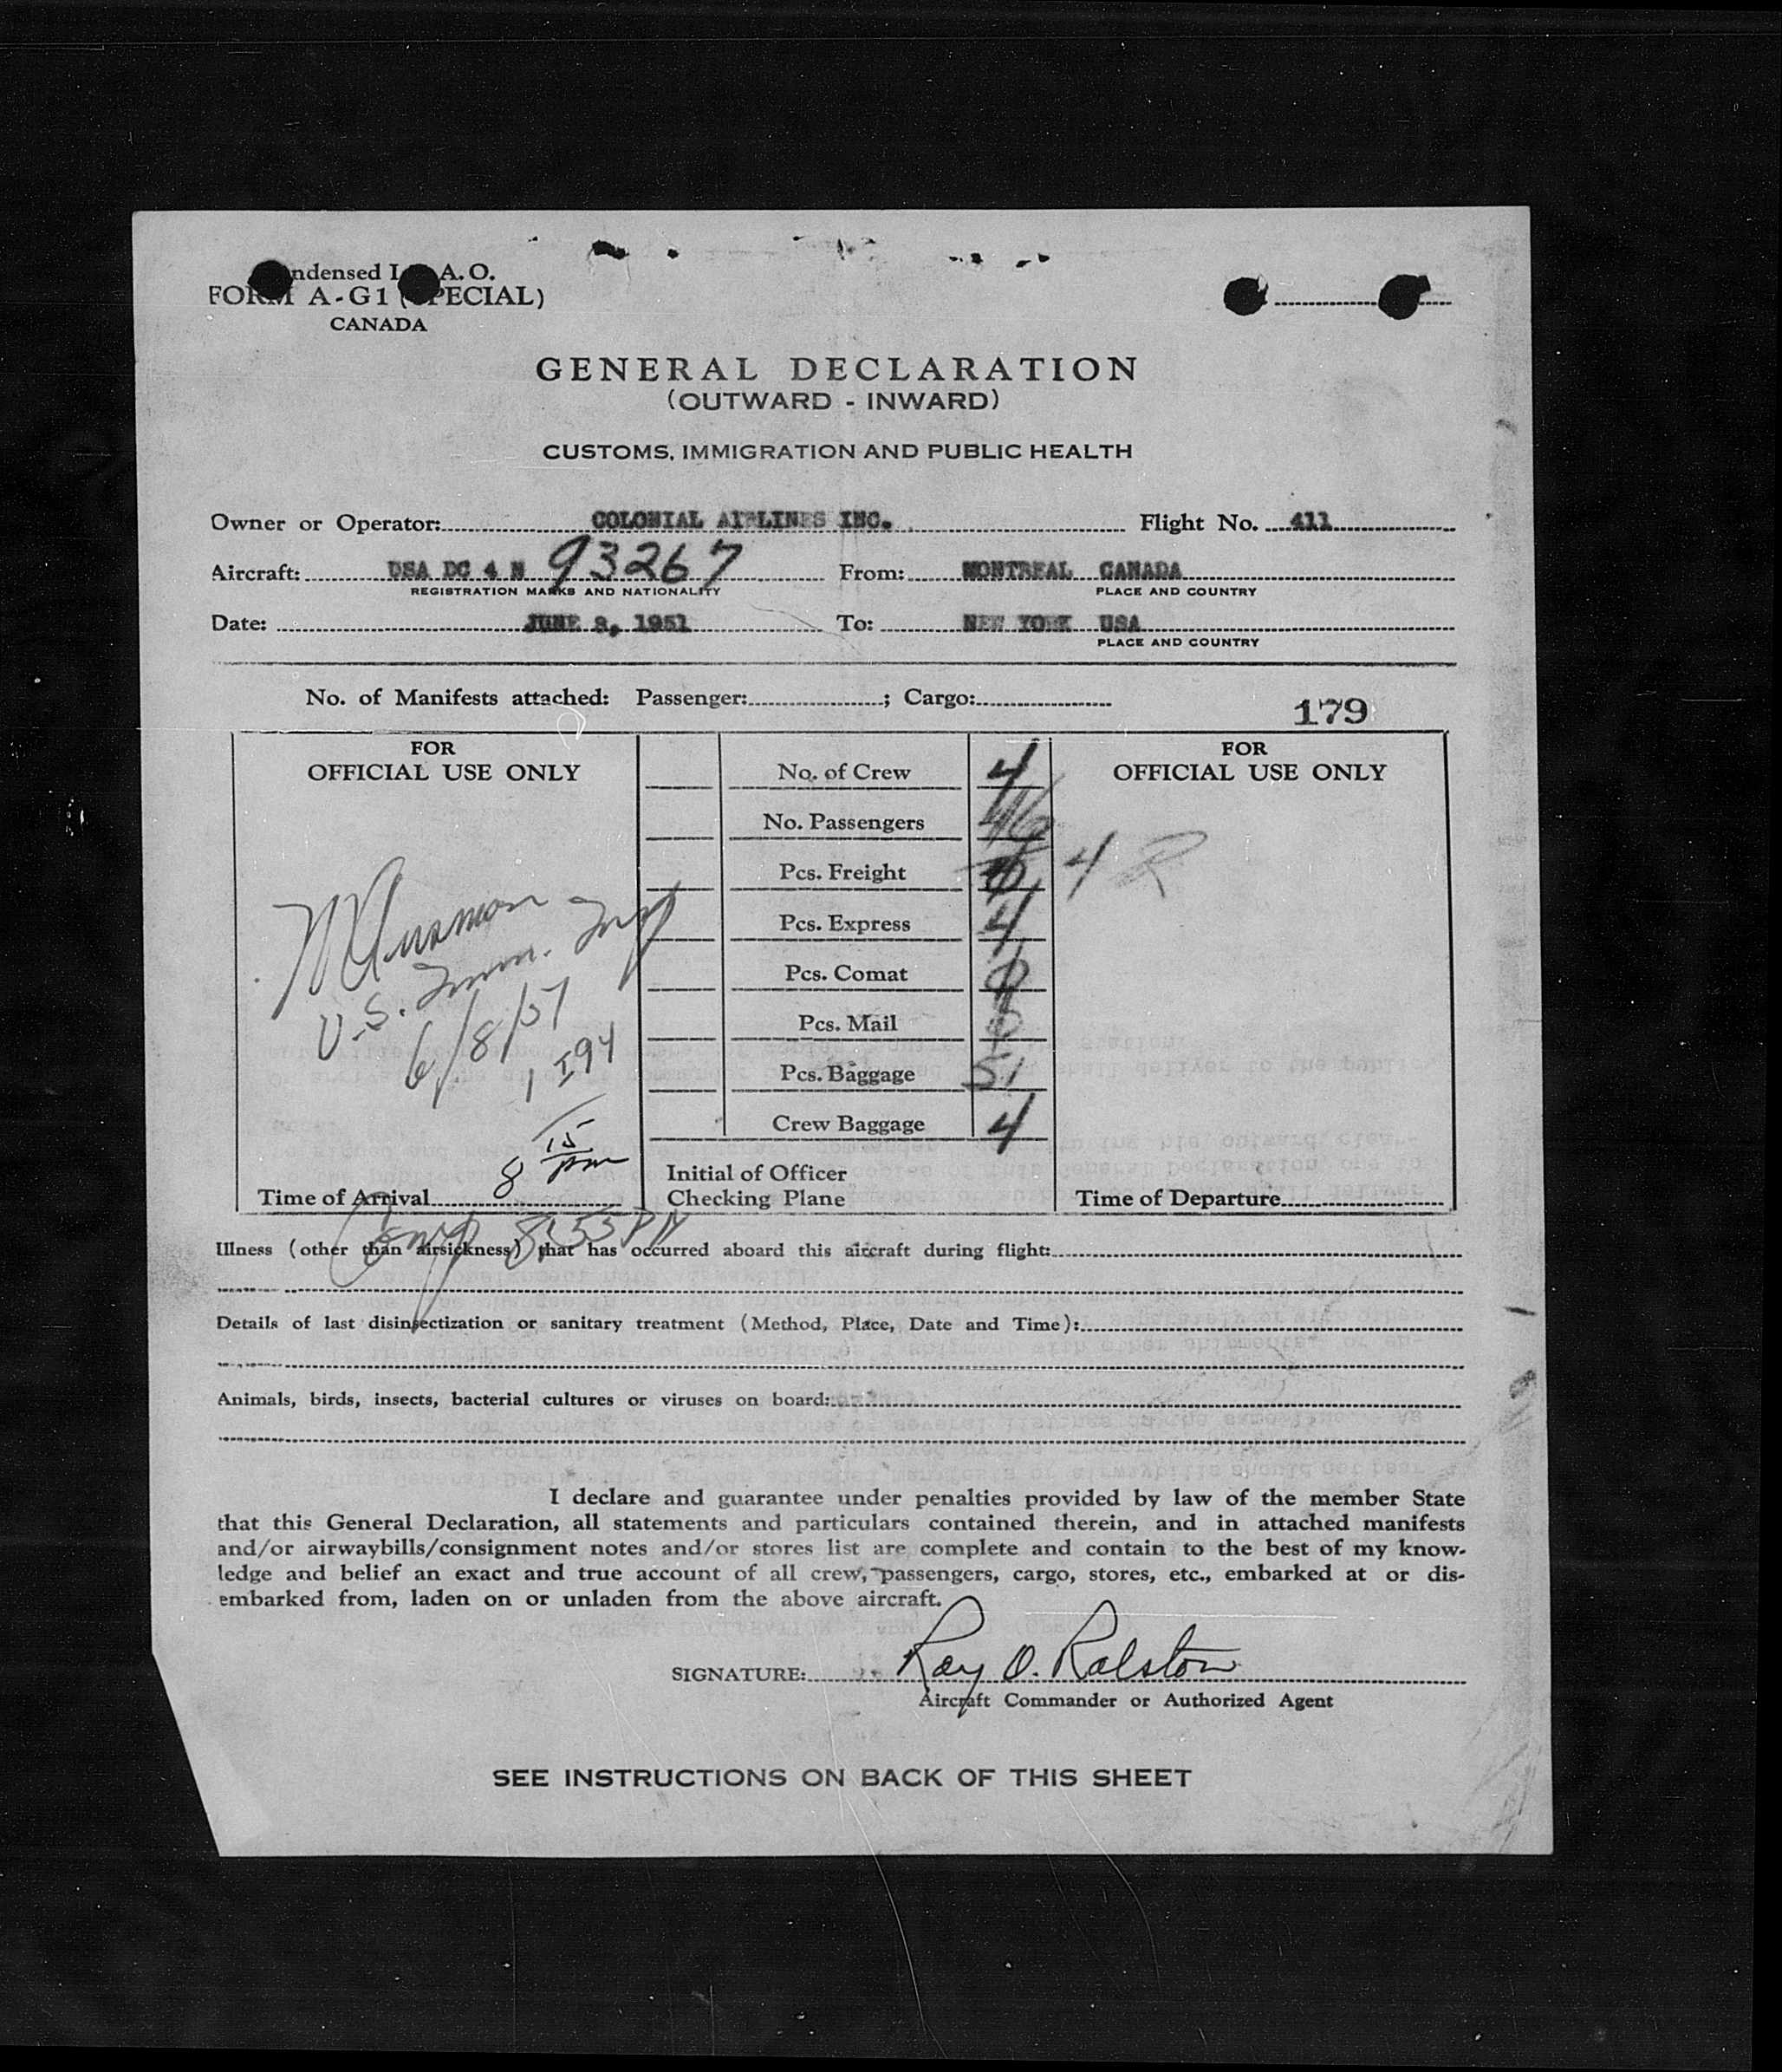 ndensed I A.O.
FORM A-G1 (SPECIAL)
CANADA
GENERAL DECLARATION
(OUTWARD - INWARD)
CUSTOMS, IMMIGRATION AND PUBLIC HEALTH
Owner or Operator: COLONIAL AIRLINES INC. Flight No. 411
Aircraft: USA DC 4 N 93267 From: MONTREAL CANADA
REGISTRATION MARKS AND NATIONALITY PLACE AND COUNTRY
Date: JUNE 8, 1951 To: NEW YORK USA
PLACE AND COUNTRY
No. of Manifests attached: Passenger: ; Cargo:
179
FOR
OFFICIAL USE ONLY
U.S. Imm. Insp
6/8/51
1 I94
8 15 pm
Time of Arrival
No. of Crew 4
No. Passengers 46
Pcs. Freight
Pcs. Express 4
Pcs. Comat
Pcs. Mail
Pcs. Baggage 51
Crew Baggage 4
Initial of Officer
Checking Plane
FOR
OFFICIAL USE ONLY
4 R
Time of Departure
Comp 8:55 PM
Illness (other than airsickness) that has occurred aboard this aircraft during flight:
Details of last disinsectization or sanitary treatment (Method, Place, Date and Time):
Animals, birds, insects, bacterial cultures or viruses on board:
I declare and guarantee under penalties provided by law of the member State
that this General Declaration, all statements and particulars contained therein, and in attached manifests
and/or airwaybills/consignment notes and/or stores list are complete and contain to the best of my know-
ledge and belief an exact and true account of all crew, passengers, cargo, stores, etc., embarked at or dis-
embarked from, laden on or unladen from the above aircraft.
SIGNATURE: Ray O. Ralston
Aircraft Commander or Authorized Agent
SEE INSTRUCTIONS ON BACK OF THIS SHEET